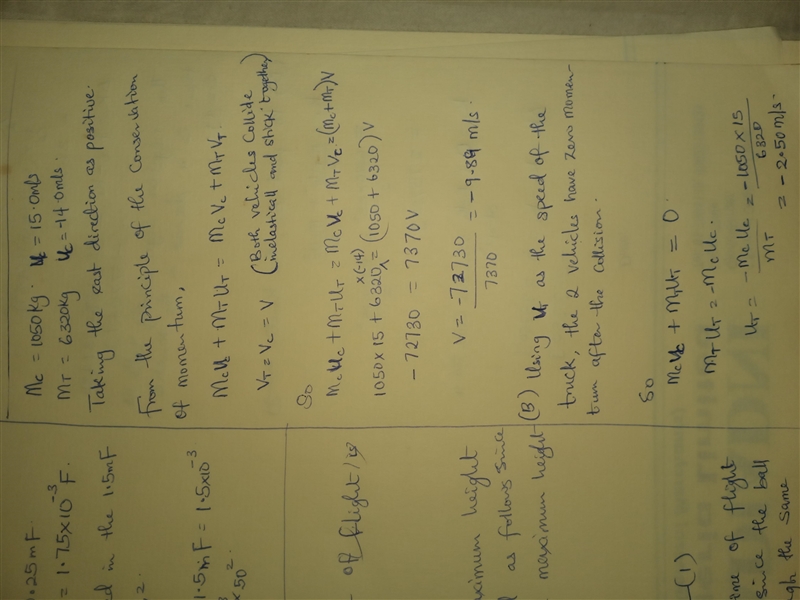 Mc = 1050kg. Uc = 15.0m/s
MT = 6320kg Uc = -14.0m/s.
Taking the east direction as positive.
From the principle of the Conservation
of momentum,
McUc + MTUT = McVc + MTVT.
VT = Vc = V (Both vehicles Collide
inelastically and stick together)
So
McUc + MTUT = McVc + MTVc = (Mc+MT)V
1050×15 + 6320×(-14) = (1050 + 6320)V
-72730 = 7370V
V = -72730 / 7370 = -9.89 m/s.
(B) Using UT as the speed of the
truck, the 2 vehicles have zero momen-
tum after the collision.
So
McUc + MTUT = 0.
MTUT = -McUc.
UT = -McUc / MT = -1050×15 / 6320
= -2.50m/s.
.25mF
= 1.75×10⁻³ F.
in the 1.5mF
2.
1.5mF = 1.5×10⁻³
×50².
of flight/
ximum height
as follows since
maximum height
-(1)
me of flight
since the ball
the same